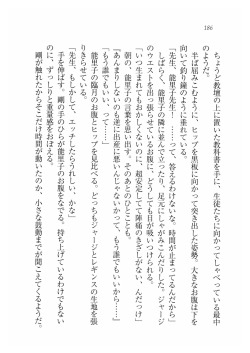 186
ちょうど教壇の上に置いた教科書を手に、生徒たちに向かってしゃべっている最中
で、半ば屈みこむように、ヒップを黒板に向かって突き出した姿勢。大きなお腹は下を
向いて釣り鐘のように垂れている。
「先生、能里子先生！　……って、答えるわけないな。時間が止まってるんだから」
しばらく、能里子の隣に並んで立ったり、足元にしゃがみこんだりした。ジャージ
のウエストを出っ張らせているお腹に、どうしても目が吸いついてしまう。
「いつ生まれてもおかしくないのに、超安定してて陣痛のきざしがない、んだっけ」
朝の、能里子の言葉を思い出す。
「あんまりしないのも逆に産まれないんじゃないかって、もう、誰でもいいから……」
「もう誰でもいい、って……」
能里子の臨月のお腹とヒップを見比べる。どっちもジャージとレギンスの生地を張
りきらせている。
「先生、もしかして、エッチしたらうれしい、かな」
手を伸ばす。剛の手のひらが能里子のお腹をなでる。持ち上げているわけでもない
のに、ずっしりと重量感をおぼえる。
剛が触れたからそこだけ時間が動いたのか、小さな鼓動までが聞こえてくるようだ。